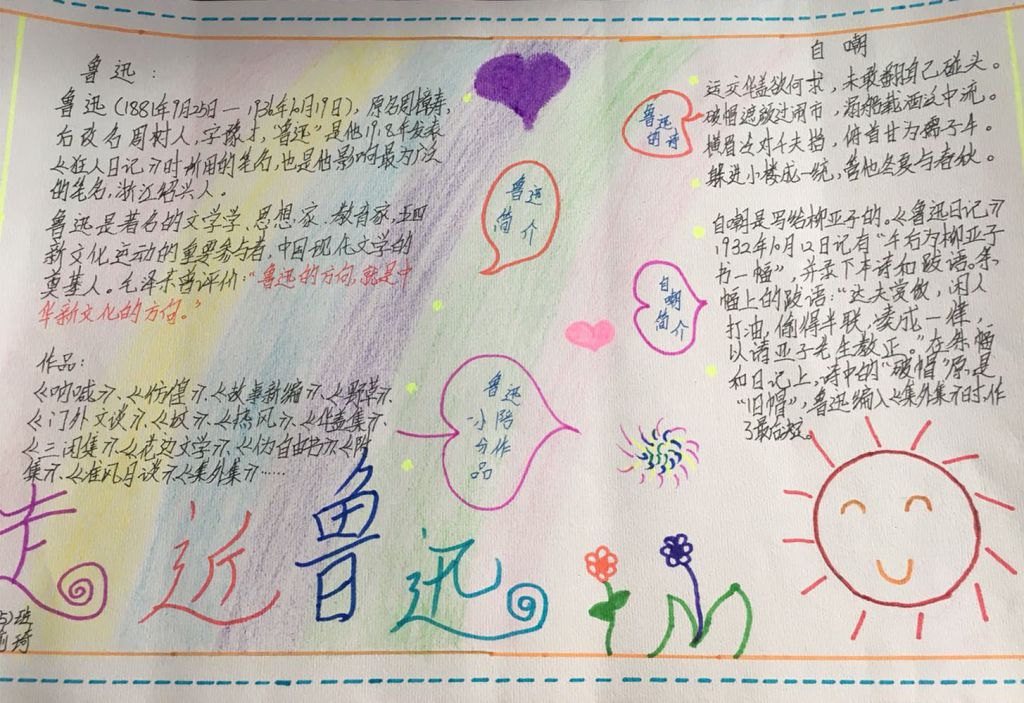 鲁迅：
鲁迅（1881年9月25日—1936年10月19日），原名周樟寿，
后改名周树人，字豫才，“鲁迅”是他1918年发表
《狂人日记》时所用的笔名，也是他影响最为广泛
的笔名，浙江绍兴人。
鲁迅是著名的文学学、思想家、教育家，五四
新文化运动的重要参与者，中国现代文学的
奠基人。毛泽东曾评价：“鲁迅的方向，就是中
华新文化的方向。”
作品：
《呐喊》、《彷徨》、《故事新编》、《野草》、
《门外文谈》、《坟》、《热风》、《华盖集》、
《三闲集》、《花边文学》、《伪自由书》、《
集》、《准风月谈》、《集外集》……
鲁迅
简介
鲁迅
的诗
自嘲
简介
鲁迅
小部
分作
品
自嘲
运交华盖欲何求，未敢翻自己碰头。
破帽遮颜过闹市，漏船载酒泛中流。
横眉冷对千夫指，俯首甘为孺子牛。
躲进小楼成一统，管他冬夏与春秋。
自嘲是写给柳亚子的。《鲁迅日记》
1932年10月12日记有“午后为柳亚子
书一幅”，并录下本诗和跋语。条
幅上的跋语：“达夫赏饭，闲人
打油，偷得半联，凑成一律，
以请亚子先生教正。”在条幅
和日记上，诗中的“破帽”原是
“旧帽”，鲁迅编入《集外集》时，作
了最后
走近鲁迅
5)班
琦